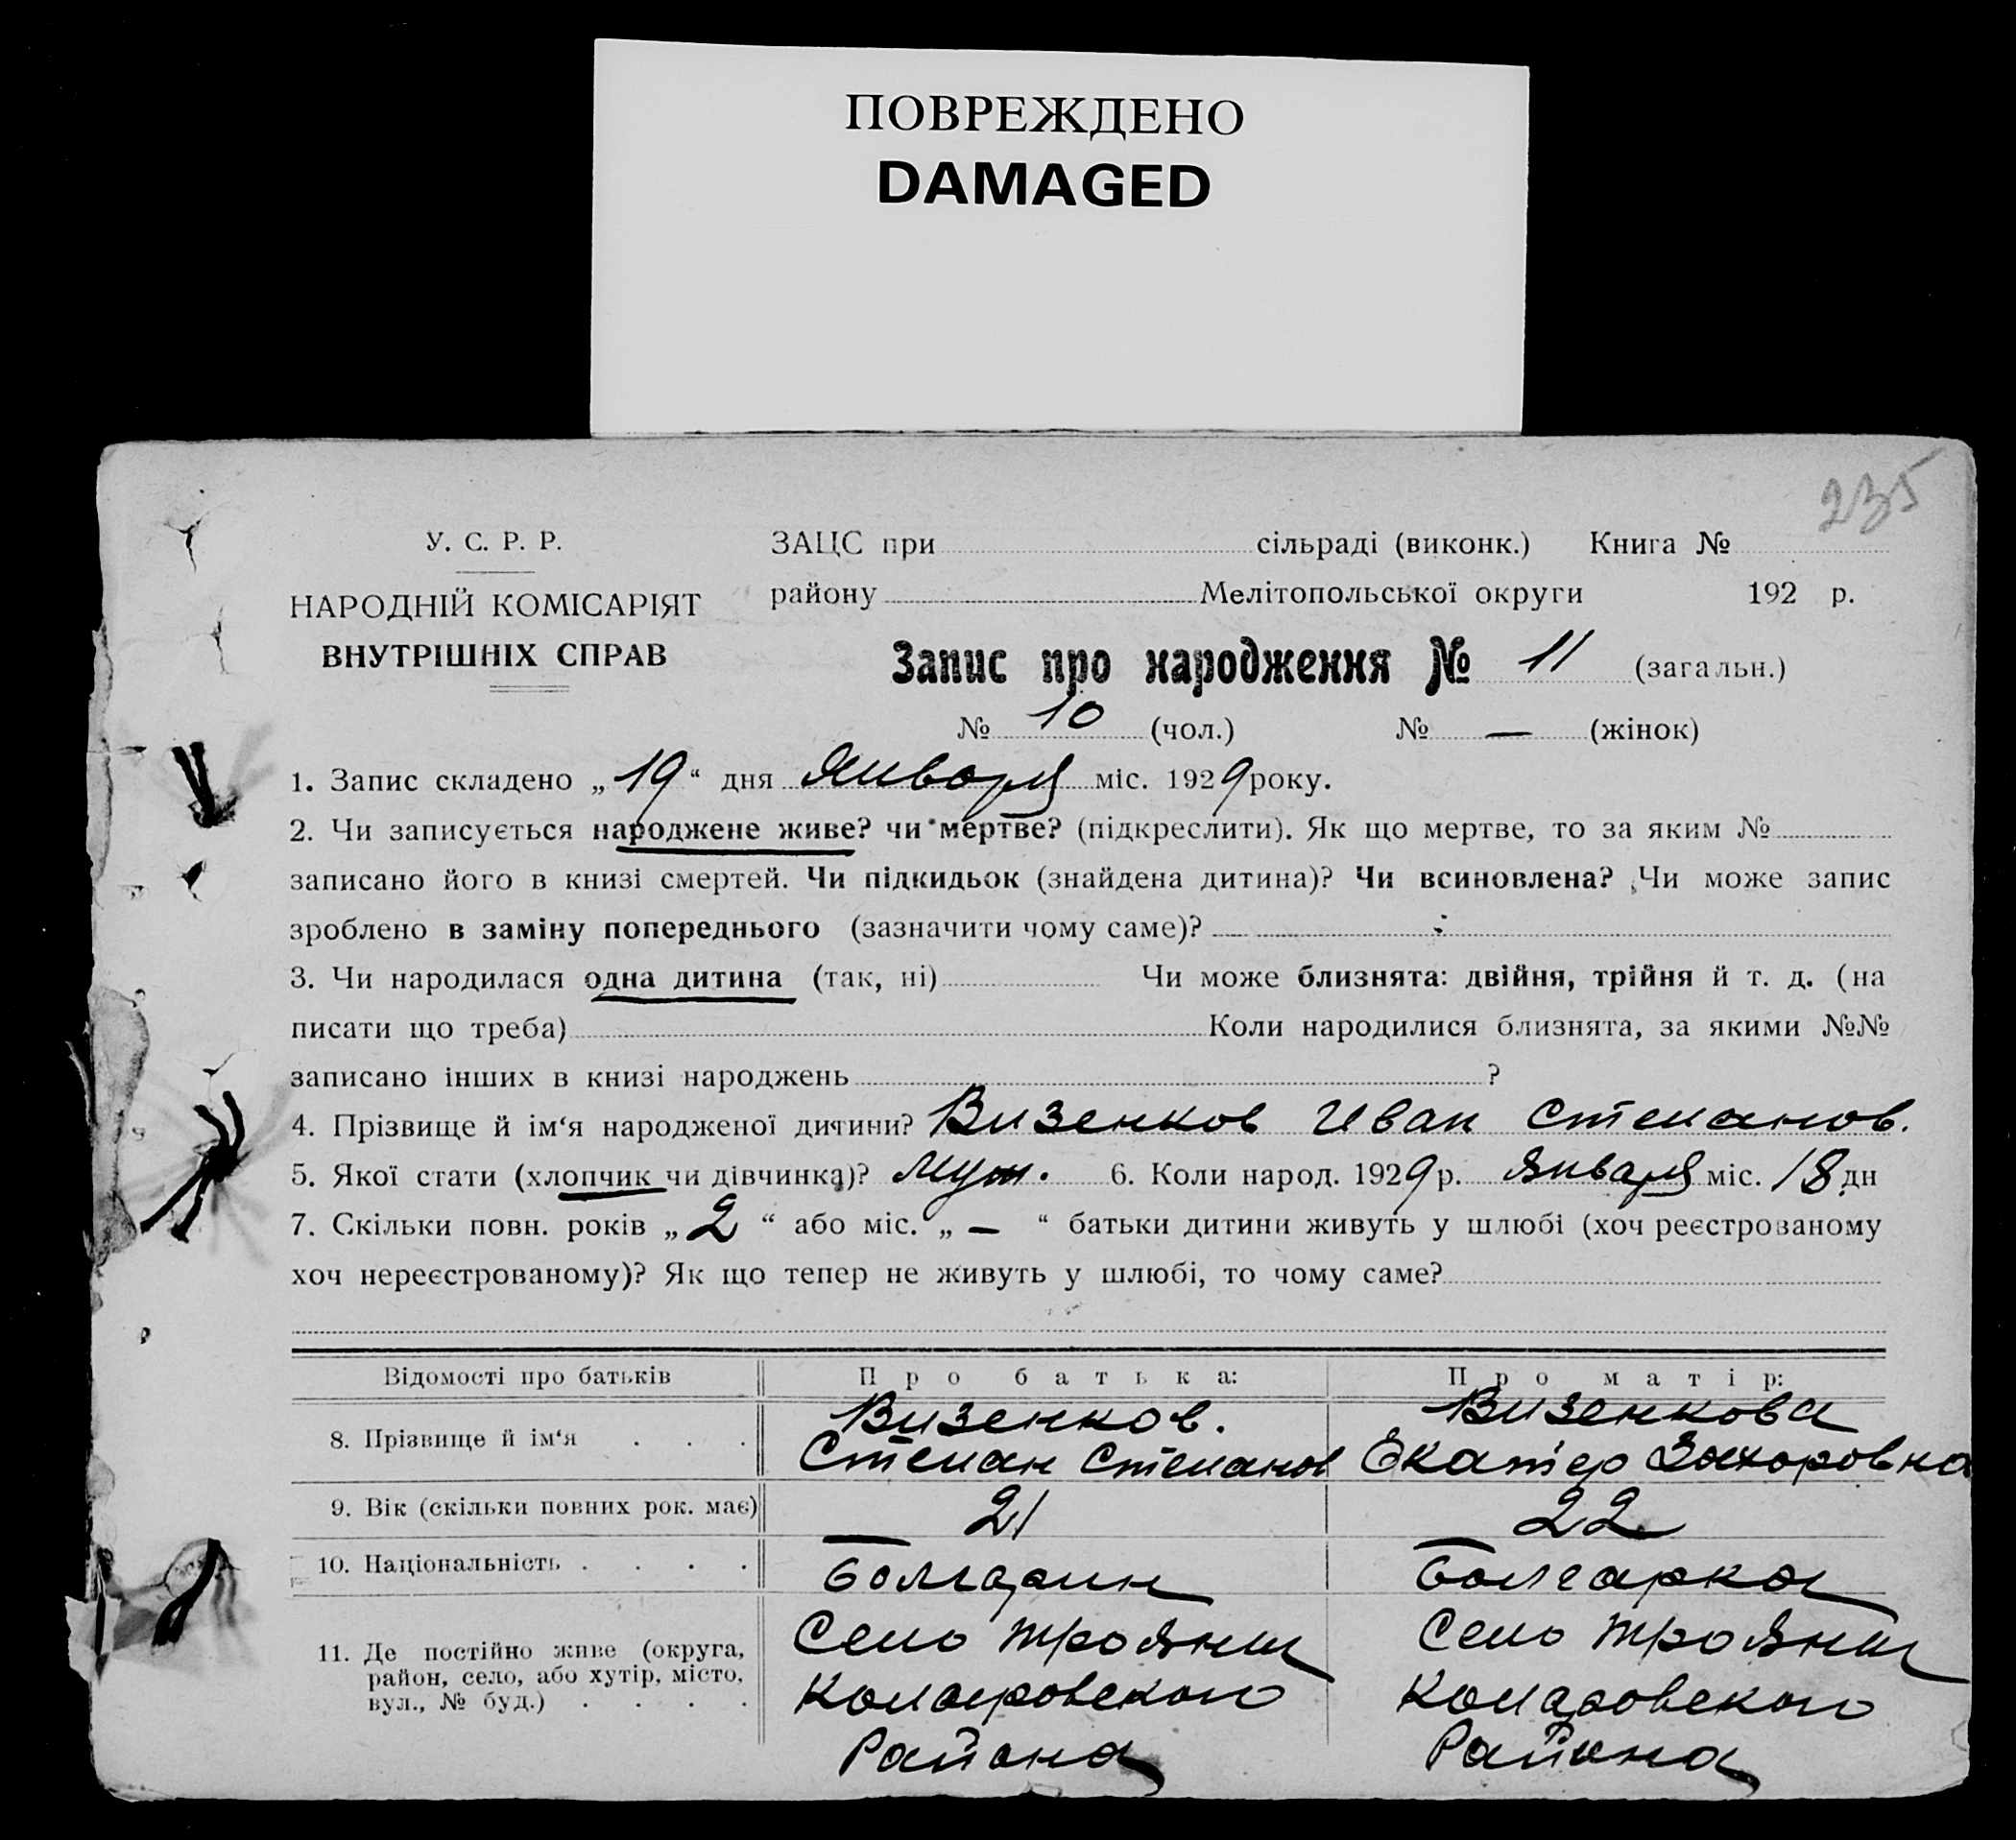 ПОВРЕЖДЕНО
DAMAGED
235
У. С. Р. Р.
НАРОДНІЙ КОМІСАРІЯТ
ВНУТРІШНІХ СПРАВ
ЗАЦС при сільраді (виконк.) Книга №
району Мелітопольської округи 192 р.
Запис про народження № 11 (загальн.)
№ 10 (чол.) № — (жінок)
1. Запис складено „19“ дня Января міс. 1929 року.
2. Чи записується народжене живе? чи мертве? (підкреслити). Як що мертве, то за яким №
записано його в книзі смертей. Чи підкидьок (знайдена дитина)? Чи всиновлена? Чи може запис
зроблено в заміну попереднього (зазначити чому саме)?
3. Чи народилася одна дитина (так, ні) Чи може близнята: двійня, трійня й т. д. (на
писати що треба) Коли народилися близнята, за якими №№
записано інших в книзі народжень ?
4. Прізвище й ім‘я народженої дитини? Визенков Иван Степанов.
5. Якої стати (хлопчик чи дівчинка)? Муж. 6. Коли народ. 1929 р. Января міс. 18 дн
7. Скільки повн. років „2“ або міс. „—“ батьки дитини живуть у шлюбі (хоч реєстрованому
хоч нереєстрованому)? Як що тепер не живуть у шлюбі, то чому саме?
Відомості про батьків Про батька: Про матір:
8. Прізвище й ім‘я . . . Визенков. Визенкова
Степан Степанов Екатер Захаровна
9. Вік (скільки повних рок. має) 21 22
10. Національність . . . . Болгарин Болгарка
11. Де постійно живе (округа, Село Трояны Село Трояны
район, село, або хутір, місто, Комаровского Комаровского
вул., № буд.) . . . . Района Района